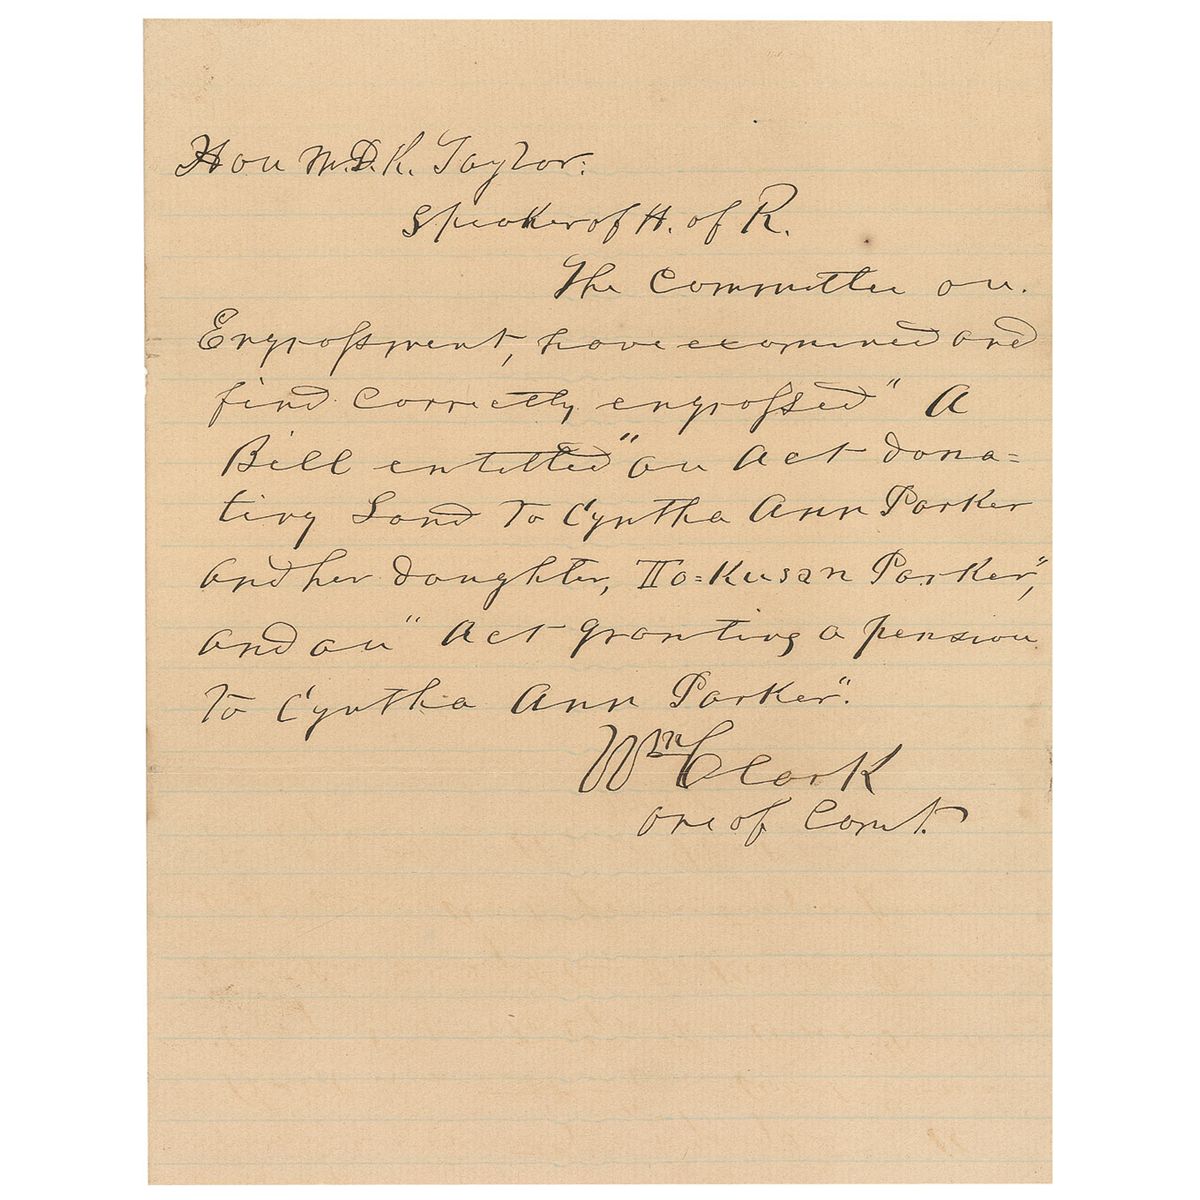 Hon M.D.K. Taylor:
Speaker of H. of R.
The Committee on
Engrossment, have examined and
find correctly engrossed " A
Bill entitled "an Act dona=
ting Land To Cyntha Ann Parker
and her daughter, To=Kusan Parker",
and an " Act granting a pension
To Cyntha Ann Parker".
Wm Clark
one of Comt.